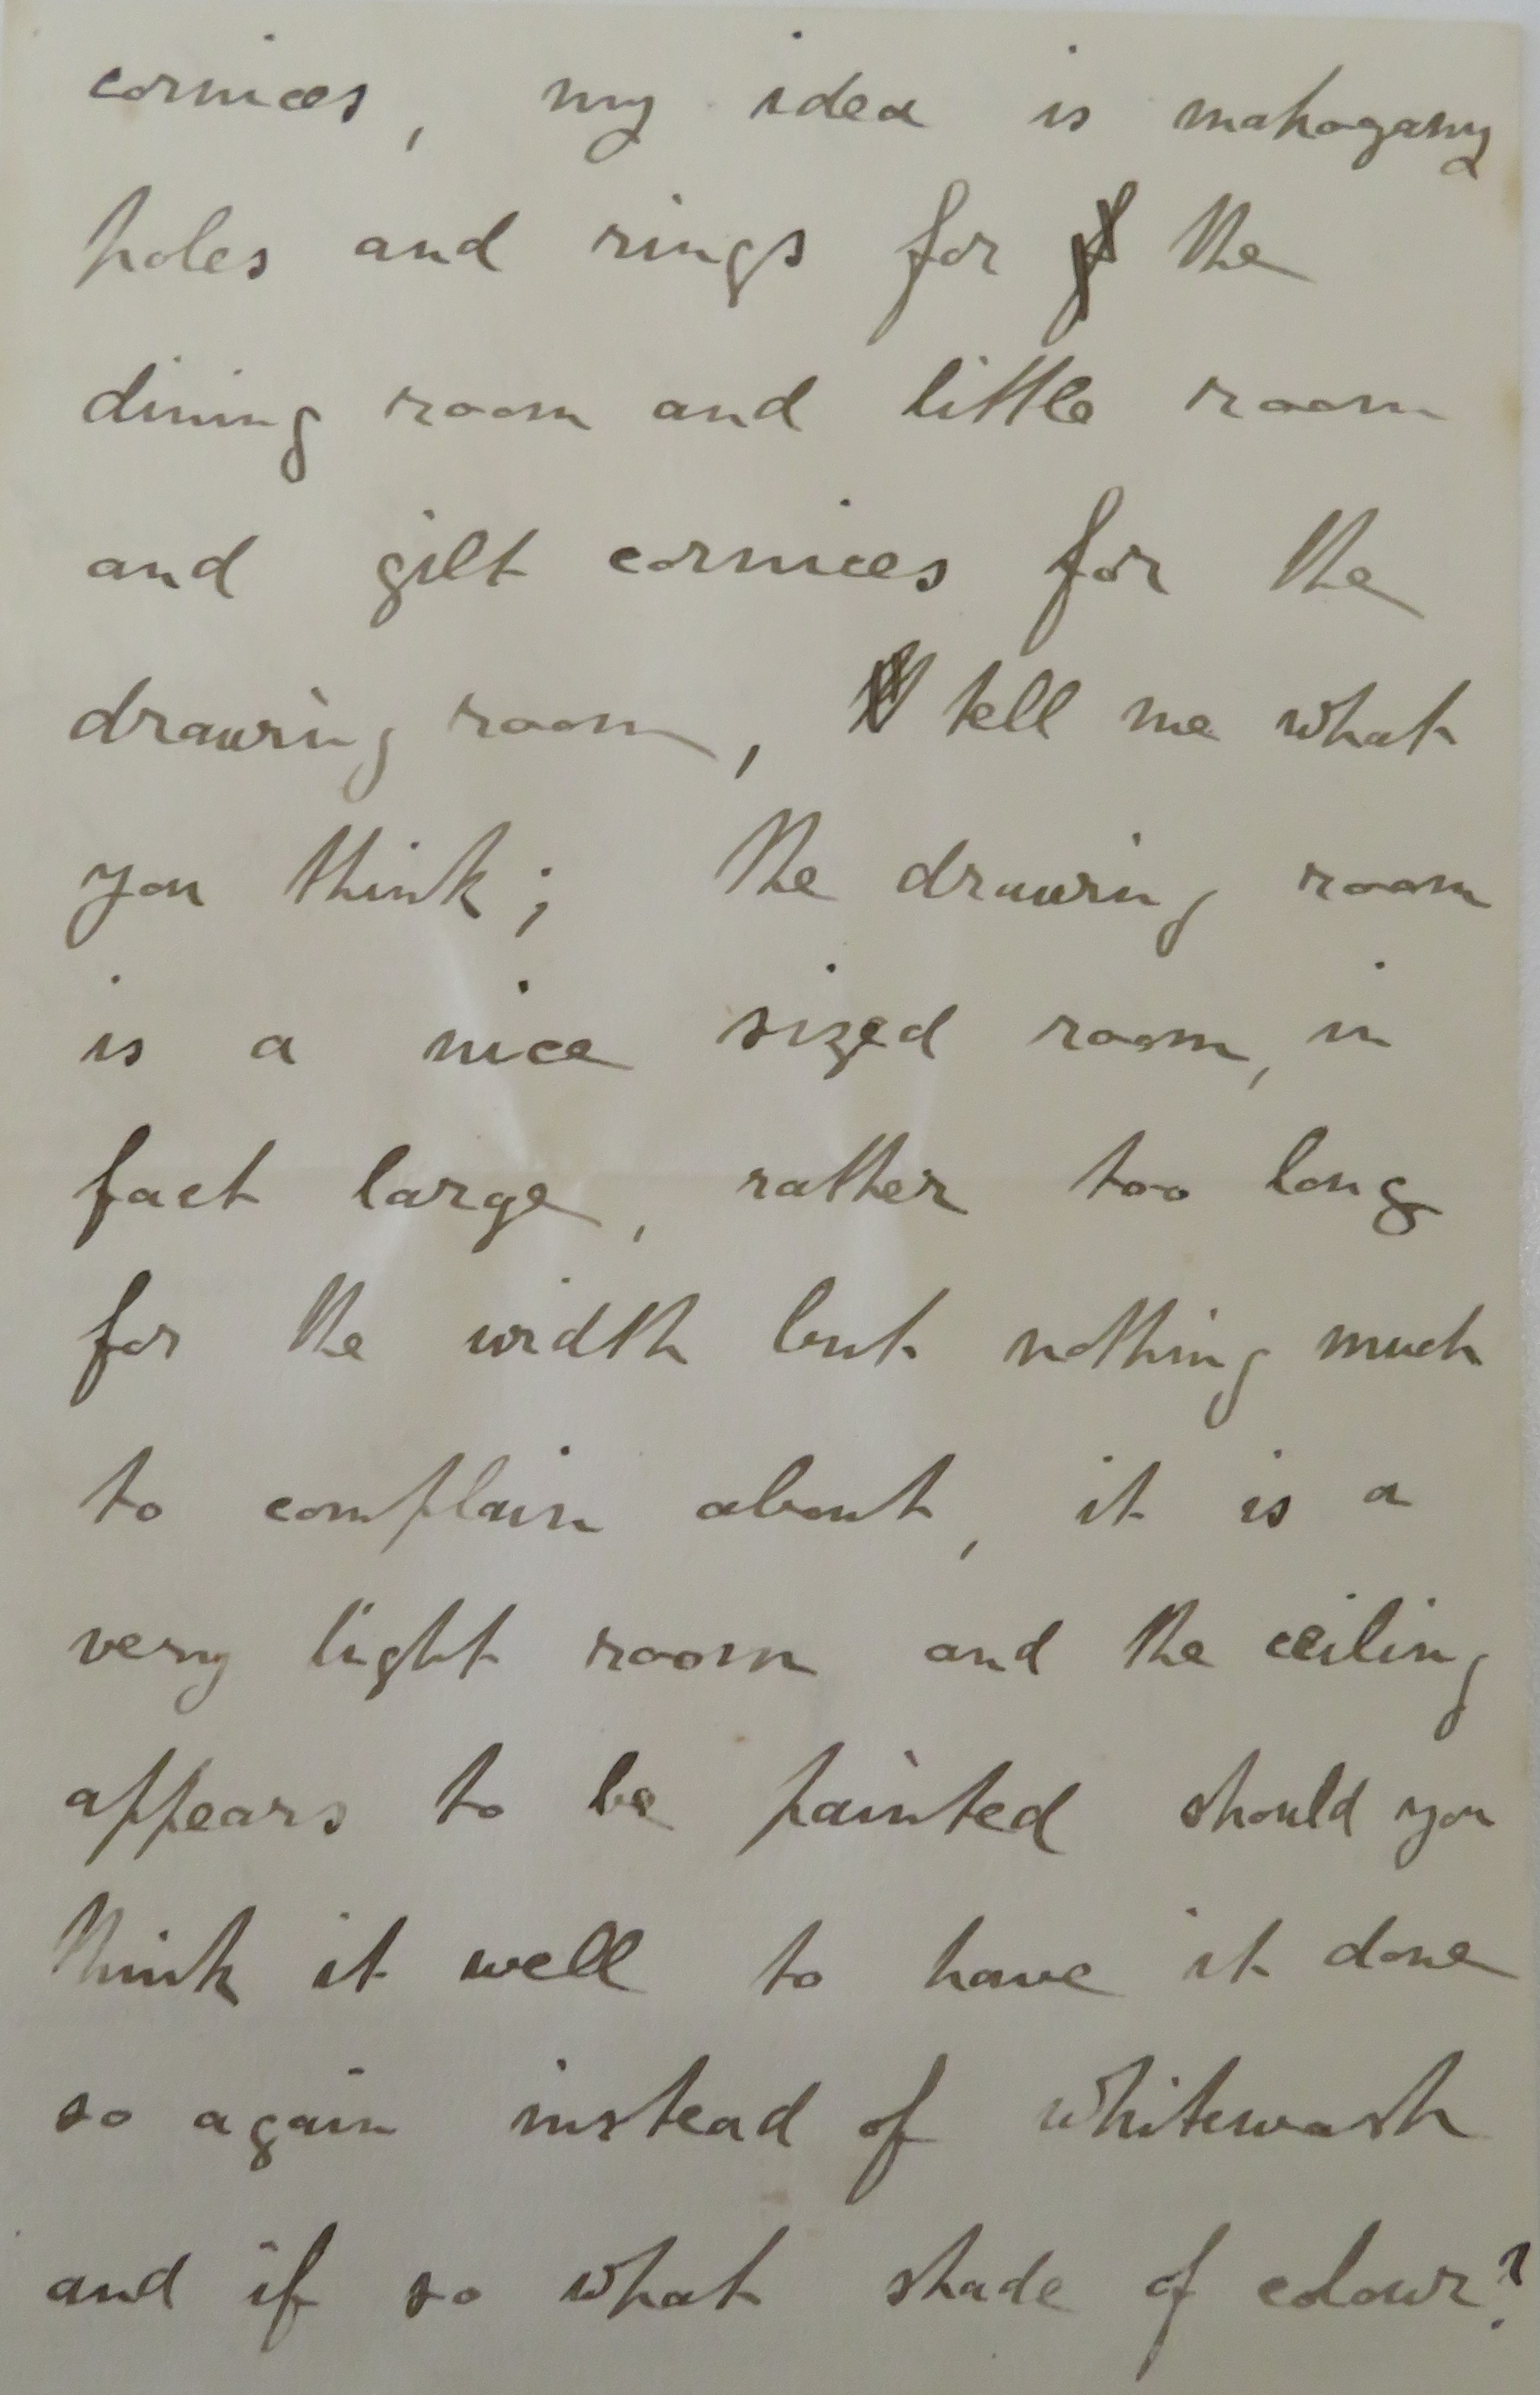 cornices, my idea is mahogany
poles and rings for the
dining room and little room
and gilt cornices for the
drawing room, tell me what
you think; the drawing room
is a nice sized room, in
fact large, rather too long
for the width but nothing much
to complain about, it is a
very light room and the ceiling
appears to be painted should you
think it well to have it done
so again instead of whitewash
and if so what shade of colour?